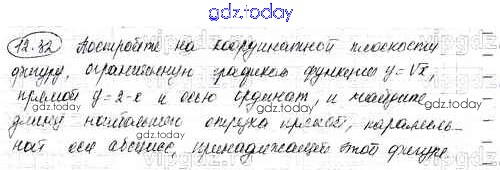 gdz.today
12.32 Постройте на координатной плоскости
фигуру, ограниченную графиком функции y = √x,
прямой y = 2 - x и осью ординат, и найдите
длину наибольшего отрезка прямой, параллель-
ной оси абсцисс, принадлежащей этой фигуре.
gdz.today
gdz.today
gdz.today
gdz.today
gdz.today